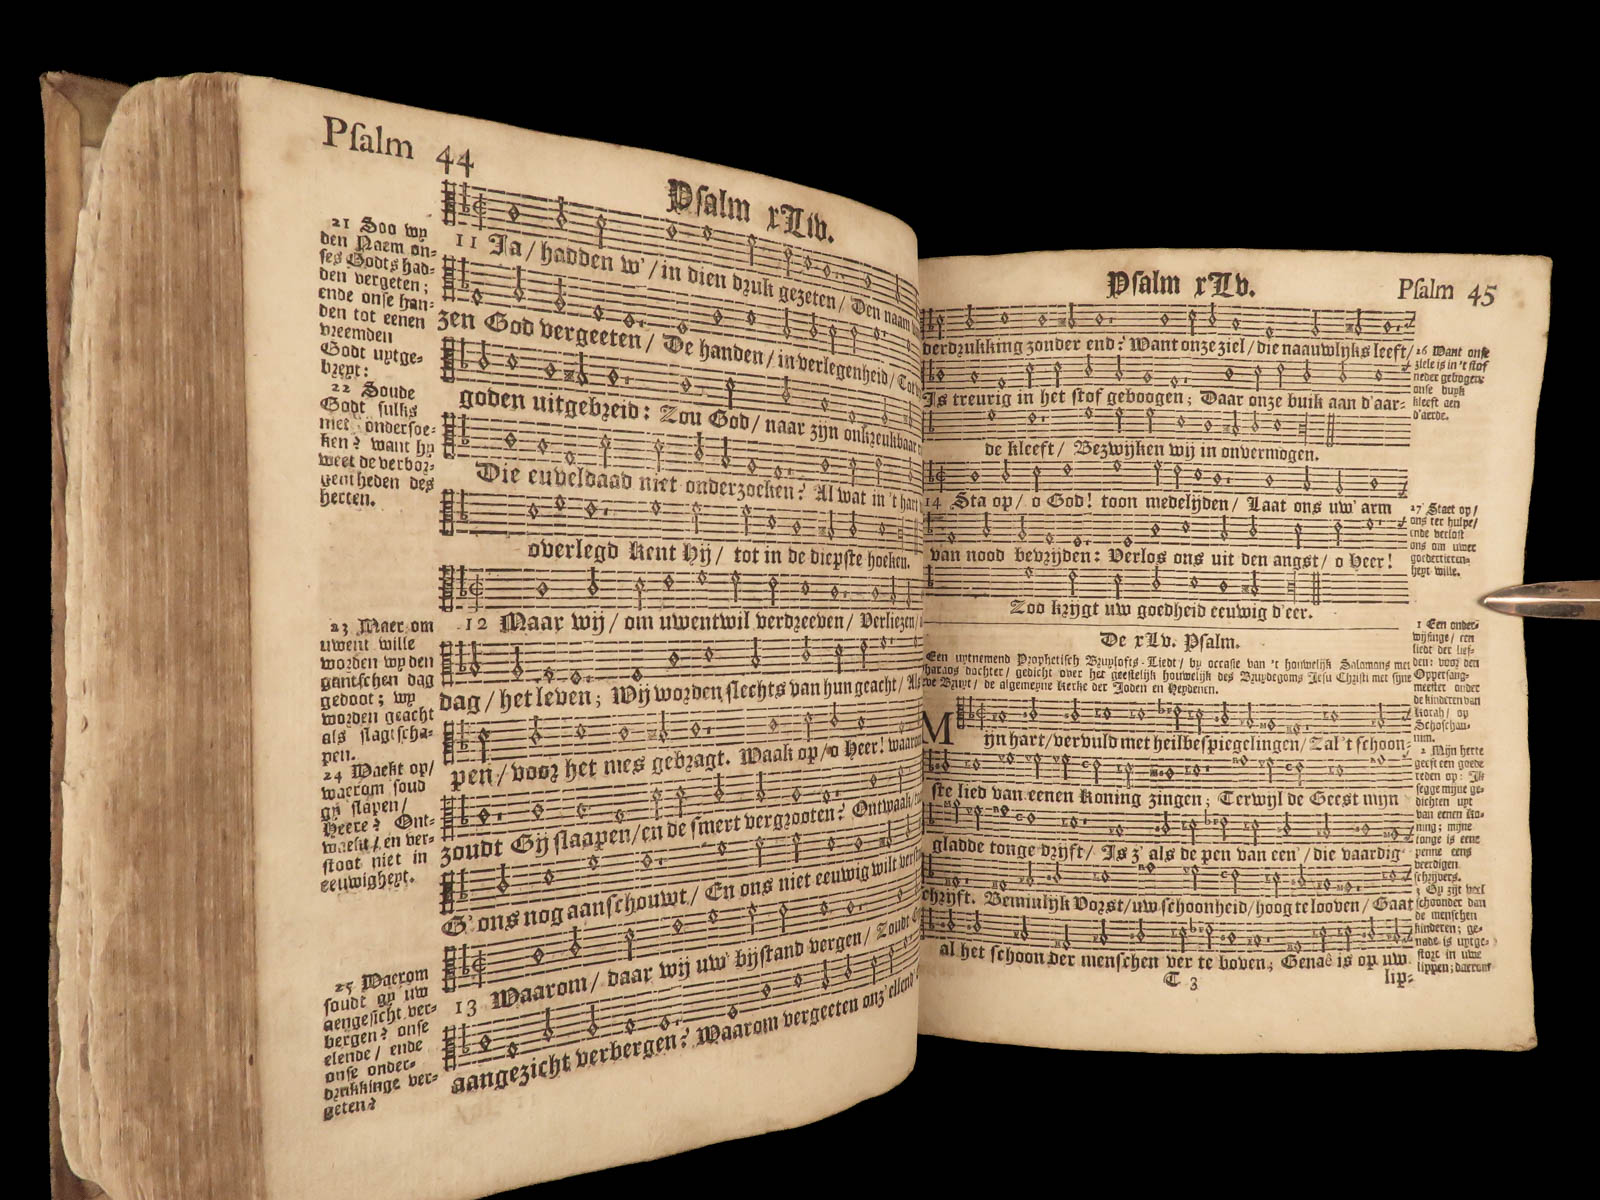 Psalm 44
Psalm xLiv.
21 Soo wy
den Naem on-
ses Godts had-
den vergeten;
ende onse han-
den tot eenen
vreemden
Godt uytge-
breyt:
22 Soude
Godt sulks
niet ondersoe-
ken? want hy
weet de verbor-
gentheden des
herten.
23 Maer om
uwent wille
worden wy den
gantschen dag
gedoot; wy
worden geacht
als slagtscha-
pen.
24 Waekt op/
waerom soud
gy slapen/
Heere? Ont-
waekt/ en ver-
stoot niet in
eeuwigheyt.
25 Waerom
soudt gy uw
aengesicht ver-
bergen? onse
elende/ ende
onse onder-
drukkinge ver-
geten?
11 Ja/ hadden w'/ in dien druk gezeten/ Den naam
zen God vergeeten/ De handen/ in verlegenheid/ Tot
goden uitgebreid: Zou God/ naar zijn onkreukbaar
Die euveldaad niet onderzoeken? Al wat in 't hart
overlegd kent Hij/ tot in de diepste hoeken.
12 Maar wij/ om uwentwil verdreeven/ Verliezen/
dag/ het leven; Wij worden slechts van hun geacht/ Als
pen/ voor het mes gebragt. Waak op/ o Heer! waarom
zoudt Gij slaapen/ en de smert vergrooten? Ontwaak/
G' ons nog aanschouwt/ En ons niet eeuwig wilt
13 Waarom/ daar wij uw' bijstand vergen/ Zoudt
aangezicht verbergen? Waarom vergeeten onz' ellend'
Psalm xLv.
Psalm 45
derdrukking zonder end? Want onze ziel/ die naauwlijks leeft/
Is treurig in het stof geboogen; Daar onze buik aan d'aar-
de kleeft/ Bezwijken wij in onvermogen.
14 Sta op/ o God! toon medelijden/ Laat ons uw' arm
van nood bevrijden: Verlos ons uit den angst/ o Heer!
Zoo krijgt uw goedheid eeuwig d'eer.
26 Want onse
ziele is in 't stof
neder gebogen:
onse buyk
kleeft aen
d'aerde.
27 Staet op/
ons ter hulpe/
ende verlost
ons om uwer
goedertieren-
heyt wille.
De xLv. Psalm.
Een uytnemend Prophetisch Bruylofts-Liedt/ by occasie van 't houwelijk Salomons met
Pharaos dochter/ gedicht over het geestelijk houwelijk des Bruydegoms Jesu Christi met syne
Bruyt/ de algemeyne Kerke der Joden en Heydenen.
Mijn hart/ vervuld met heilbespiegelingen/ Zal 't schoon-
ste lied van eenen Koning zingen; Terwyl de Geest mijn
gladde tonge drijft/ Is z' als de pen van een'/ die vaardig
schrijft. Beminlijk Vorst/ uw schoonheid/ hoog te looven/ Gaat
al het schoon der menschen ver te boven; Genaê is op uw
T 3
lip-
1 Een onder-
wijsinge/ een
liedt der lief-
den: voor den
Oppersang-
meester onder
de kinderen van
Korah/ op
Schoschan-
nim.
2 Mijn herte
geeft een goede
reden op: Ik
segge mijne ge-
dichten uyt
van eenen Ko-
ning; mijne
tonge is eene
penne eens
veerdigen
schrijvers.
3 Gy zijt veel
schoonder dan
de menschen
kinderen; ge-
nade is uytge-
stort in uwe
lippen; daerom